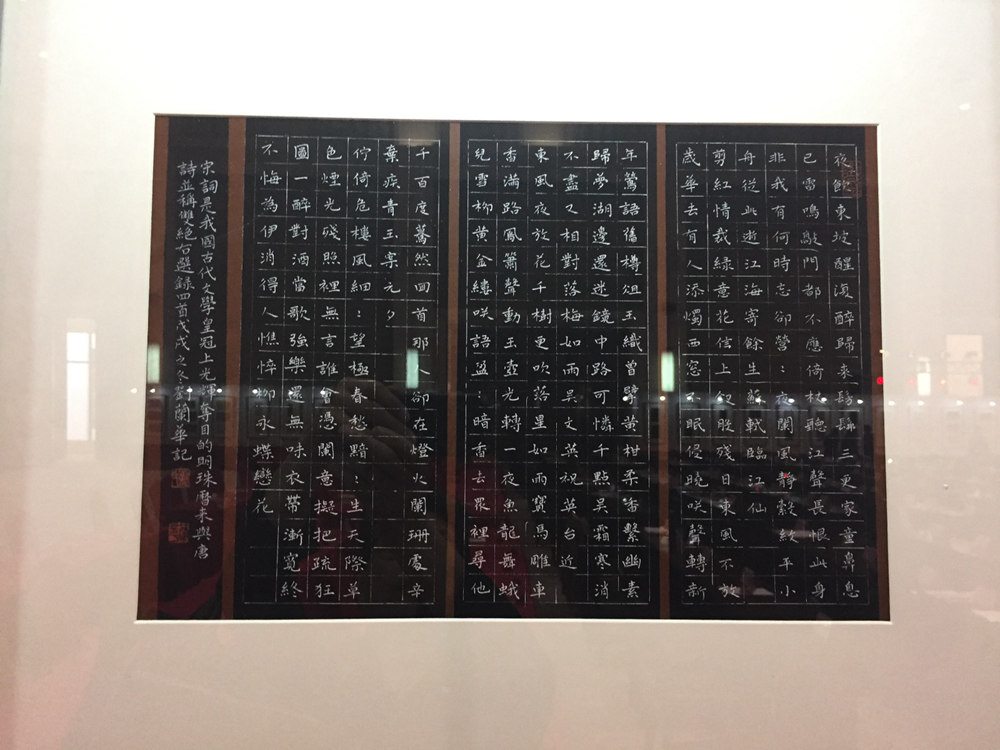 夜飲東坡醒復醉歸來髣髴三更家童鼻息
已雷鳴敲門都不應倚杖聽江聲長恨此身
非我有何時忘卻營:夜闌風靜縠紋平小
舟從此逝江海寄餘生蘇軾臨江仙
剪紅情裁綠意花信上釵股殘日東風不放
歲華去有人添燭西窓不眠侵曉咲聲轉新
年鶯語舊樽俎玉纖曾擘黃柑柔香繫幽素
歸夢湖邊還迷鏡中路可憐千點吳霜寒消
不盡又相對落梅如雨吳文英祝英台近
東風夜放花千樹更吹落星如雨寶馬雕車
香滿路鳳簫聲動玉壺光轉一夜魚龍舞蛾
兒雪柳黃金縷咲語盈:暗香去眾裡尋他
千百度驀然回首那人卻在燈火闌珊處辛
棄疾青玉案元夕
佇倚危樓風細:望極春愁黯:生天際草
色煙光殘照裡無言誰會憑闌意擬把疏狂
圖一醉對酒當歌強樂還無味衣帶漸寬終
不悔為伊消得人憔悴柳永蝶戀花
宋詞是我國古代文學皇冠上光輝奪目的明珠曆来與唐
詩並稱雙絕右選錄四首戊戌之冬劉蘭華記